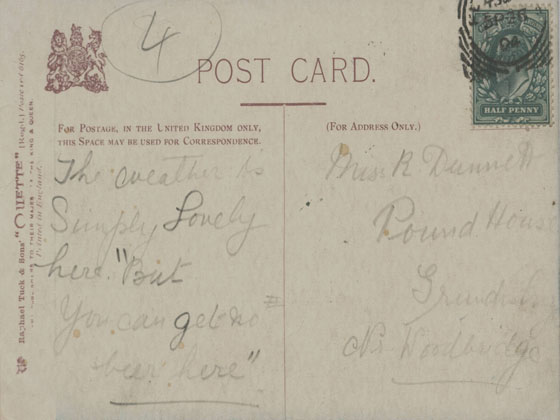 4
POST CARD.
FOR POSTAGE, IN THE UNITED KINGDOM ONLY,
THIS SPACE MAY BE USED FOR CORRESPONDENCE.
(FOR ADDRESS ONLY.)
HALF PENNY
Raphael Tuck & Sons' "OILETTE" [Regd.] Postcard
TO THEIR MAJESTIES THE KING & QUEEN.
Printed in England.
The weather is
Simply Lovely
here. "But
You can get no
beer here"
Miss R Dunnett
Pound House
Nr Woodbridge